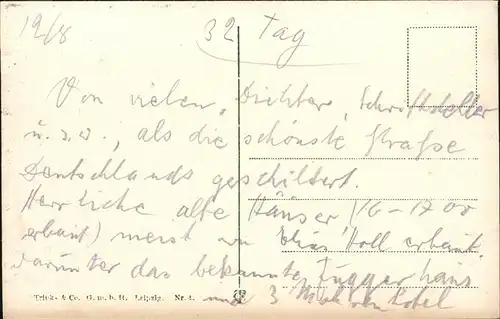 19/8 32 Tag
Von vielen, Dichter, Schriftsteller
u.s.w., als die schönste Straße
Deutschlands geschildert.
Herrliche alte Häuser, (16-1700
erbaut) meist von Elias Holl erbaut.
darunter das bekannte Fuggerhaus
und 3 Mohrenhotel
Trinks & Co. G. m. b. H. Leipzig. Nr. 4.